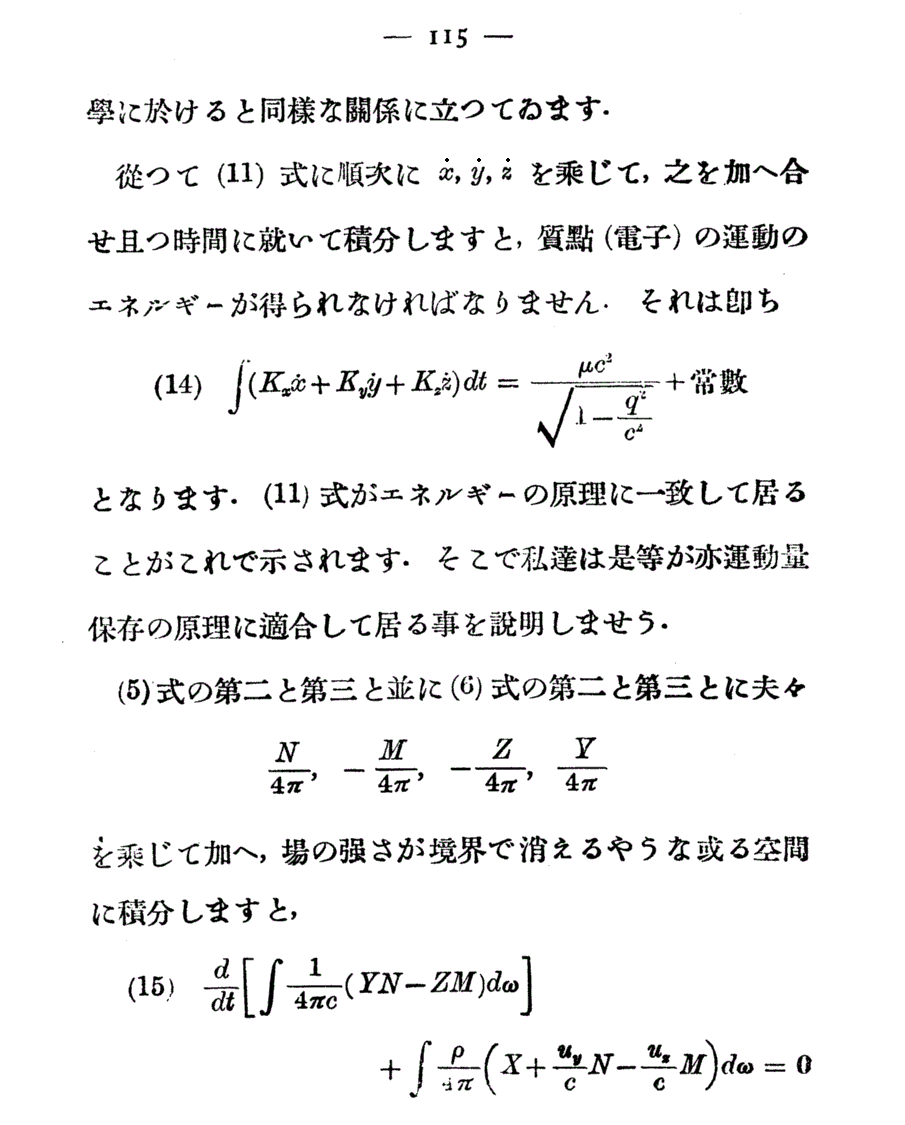 — 115 —
學に於けると同樣な關係に立つてゐます.
從つて (11) 式に順次に ẋ, ẏ, ż を乘じて, 之を加へ合
せ且つ時間に就いて積分しますと, 質點 (電子) の運動の
エネルギーが得られなければなりません. それは卽ち
(14) ∫(Kₓẋ + Kᵧẏ + K_zż)dt = μc² / √(1 − q²/c²) + 常數
となります. (11) 式がエネルギーの原理に一致して居る
ことがこれで示されます. そこで私達は是等が亦運動量
保存の原理に適合して居る事を說明しませう.
(5) 式の第二と第三と並に (6) 式の第二と第三とに夫々
N/4π, − M/4π, − Z/4π, Y/4π
を乘じて加へ, 場の强さが境界で消えるやうな或る空間
に積分しますと,
(15) d/dt [∫ 1/4πc (YN − ZM)dω]
+ ∫ ρ/4π (X + u_y/c N − u_z/c M)dω = 0